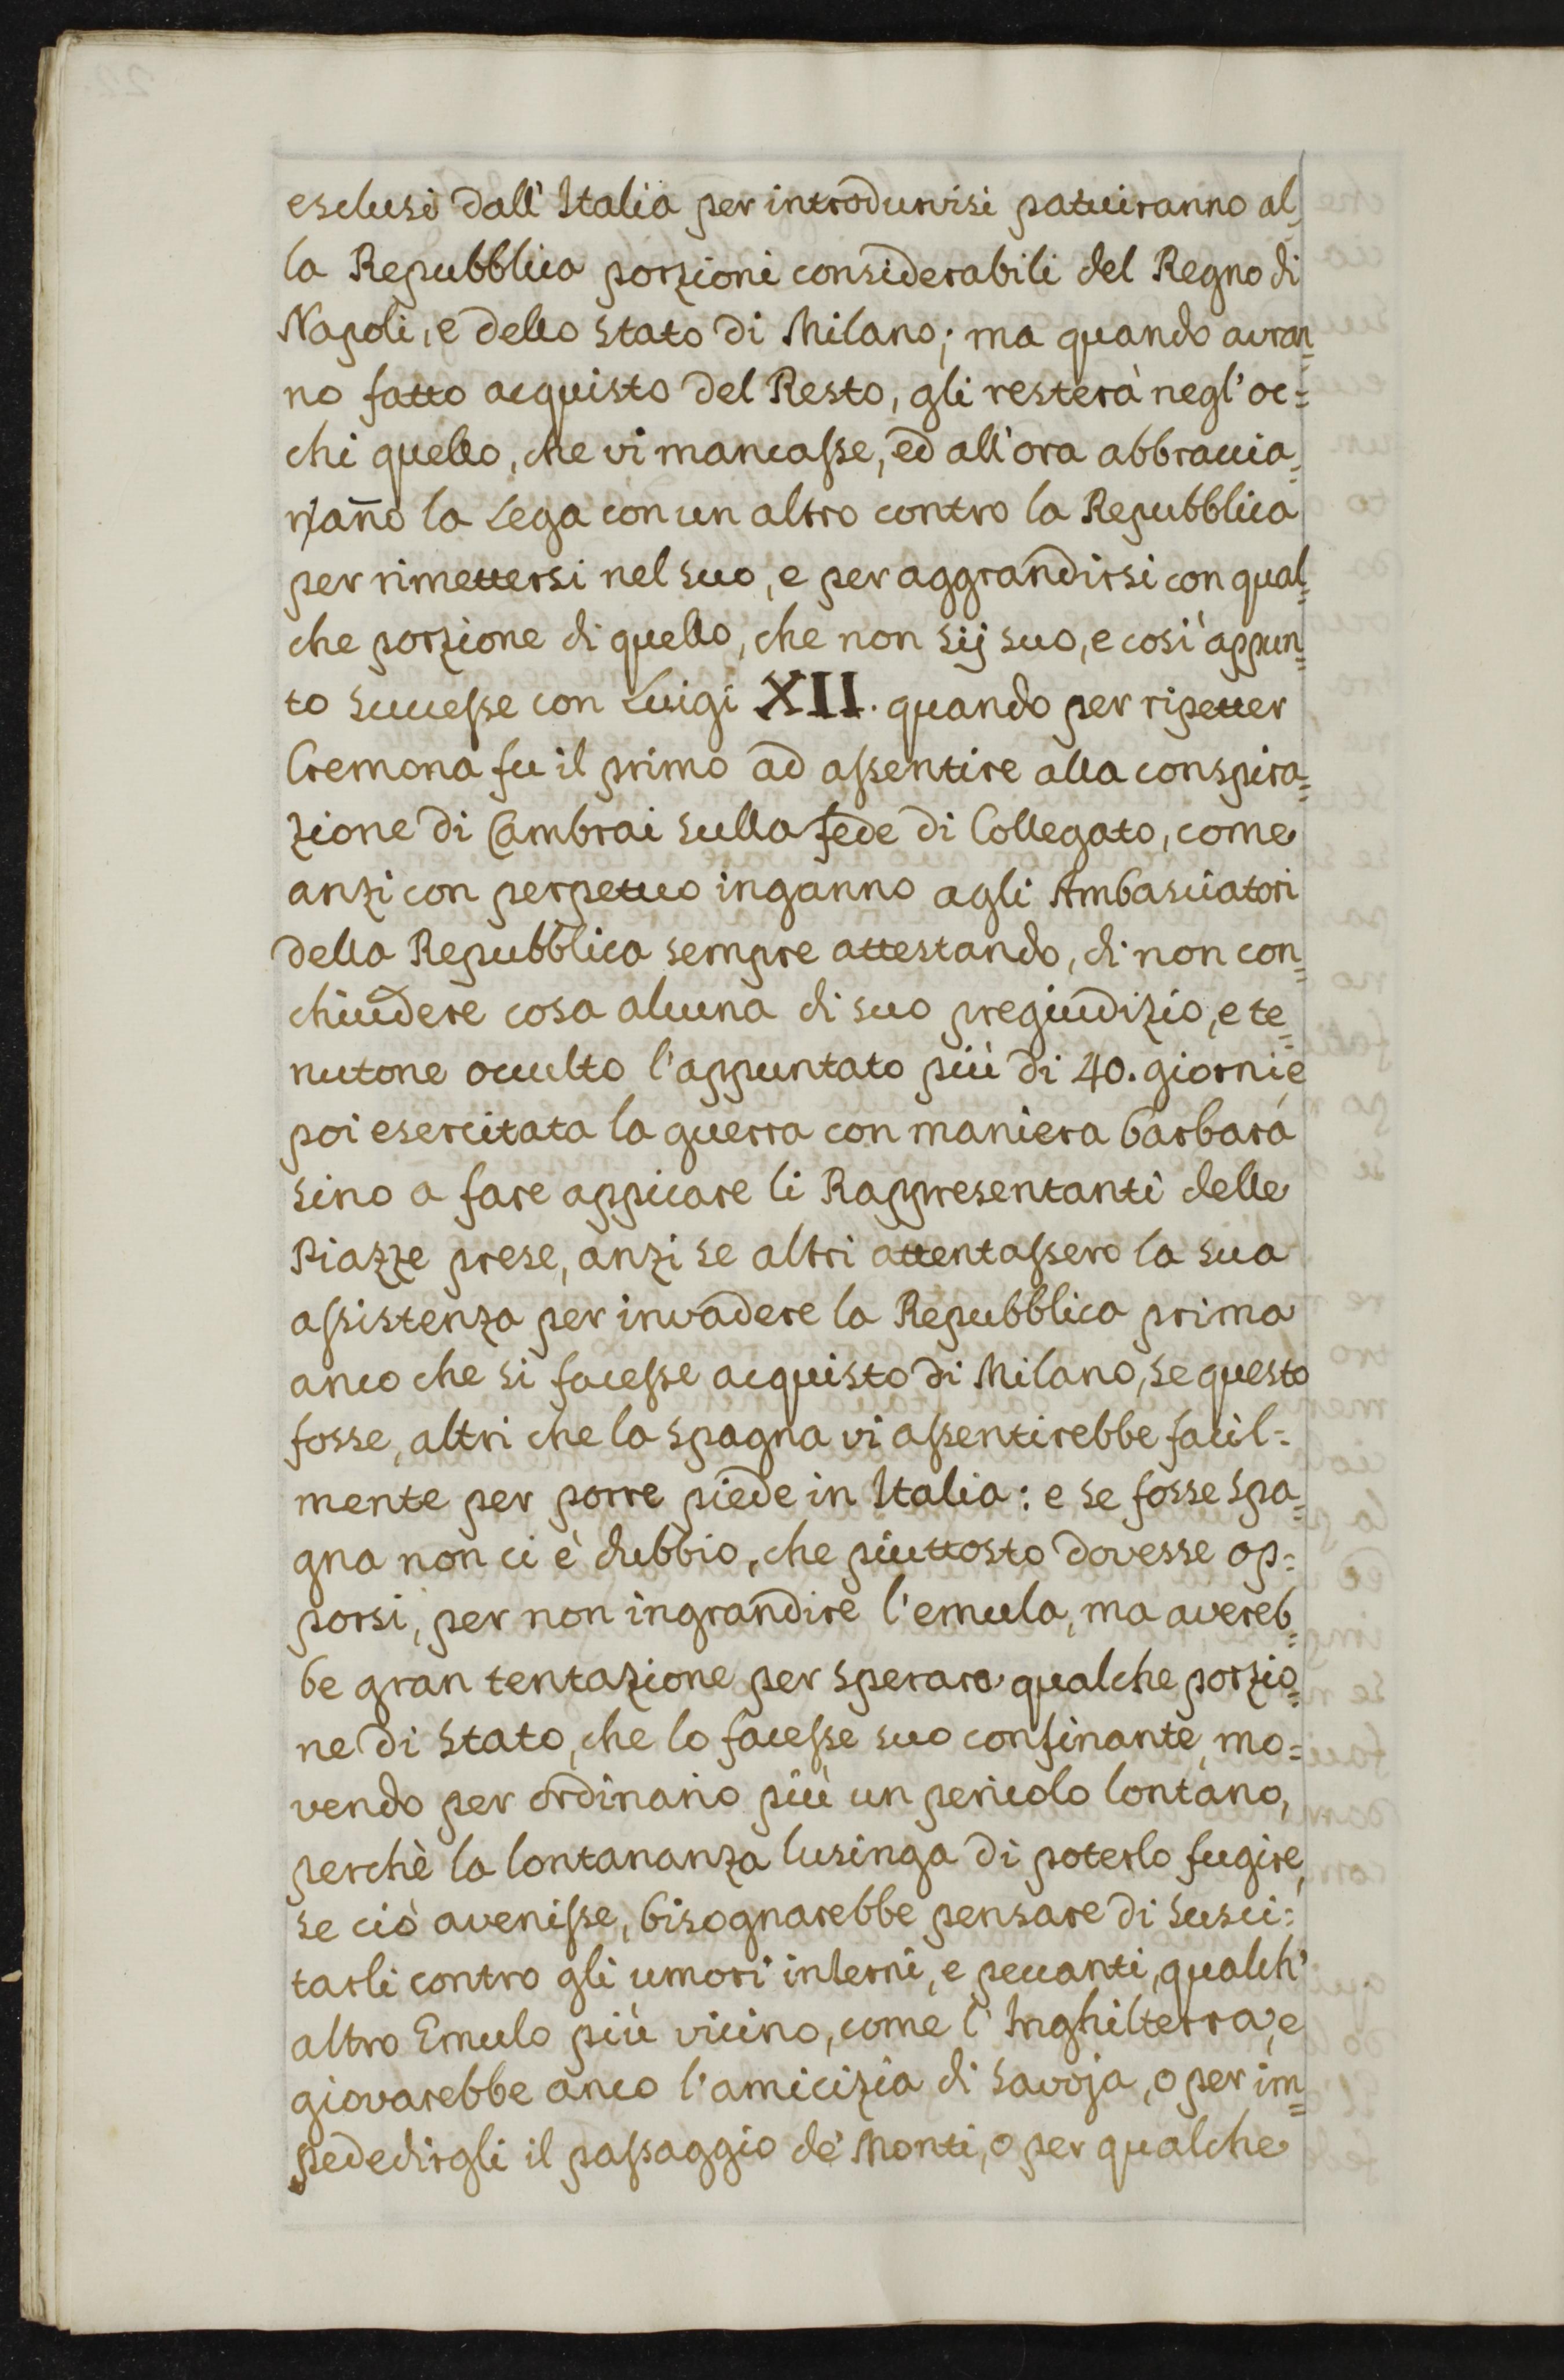 esclusi dall'Italia per introdurvisi patuiranno al=
la Repubblica porzioni considerabili del Regno di
Napoli, e dello Stato di Milano; ma quando avran=
no fatto acquisto del Resto, gli resterà negl'oc=
chi quello, che vi mancasse, ed all'ora abbraccia=
ranno la Lega con un altro contro la Repubblica
per rimettersi nel suo, e per aggrandirsi con qual=
che porzione di quello, che non sij suo, e così appun=
to successe con Luigi XII. quando per ripetter
Cremona fu il primo ad assentire alla conspira=
zione di Cambrai sulla fede di Collegato, come
anzi con perpetuo inganno agli Ambasciatori
della Repubblica sempre attestando, di non con=
chiudere cosa alcuna di suo pregiudizio, e te=
nutone occulto l'appuntato più di 40. giorni, e
poi esercitata la guerra con maniera barbara
sino a fare appicare li Rappresentanti delle
Piazze prese, anzi se altri attentassero la sua
assistenza per invadere la Repubblica prima
anco che si facesse acquisto di Milano, se questo
fosse, altri che la Spagna vi assentirebbe facil=
mente per porre piede in Italia: e se fosse Spa=
gna non ci è dubbio, che piuttosto dovesse op=
porsi, per non ingrandire l'emula, ma avereb=
be gran tentazione per sperare qualche porzio=
ne di Stato, che lo facesse suo confinante, mo=
vendo per ordinario più un pericolo lontano,
perchè la lontananza lusinga di poterlo fugire,
se ciò avenisse, bisognarebbe pensare di susci=
tarli contro gli umori interni, e peccanti, qualch'
altro Emulo più vicino, come l'Inghilterra, e
giovarebbe anco l'amicizia di Savoja, o per im=
pededirgli il passaggio de' Monti, o per qualche